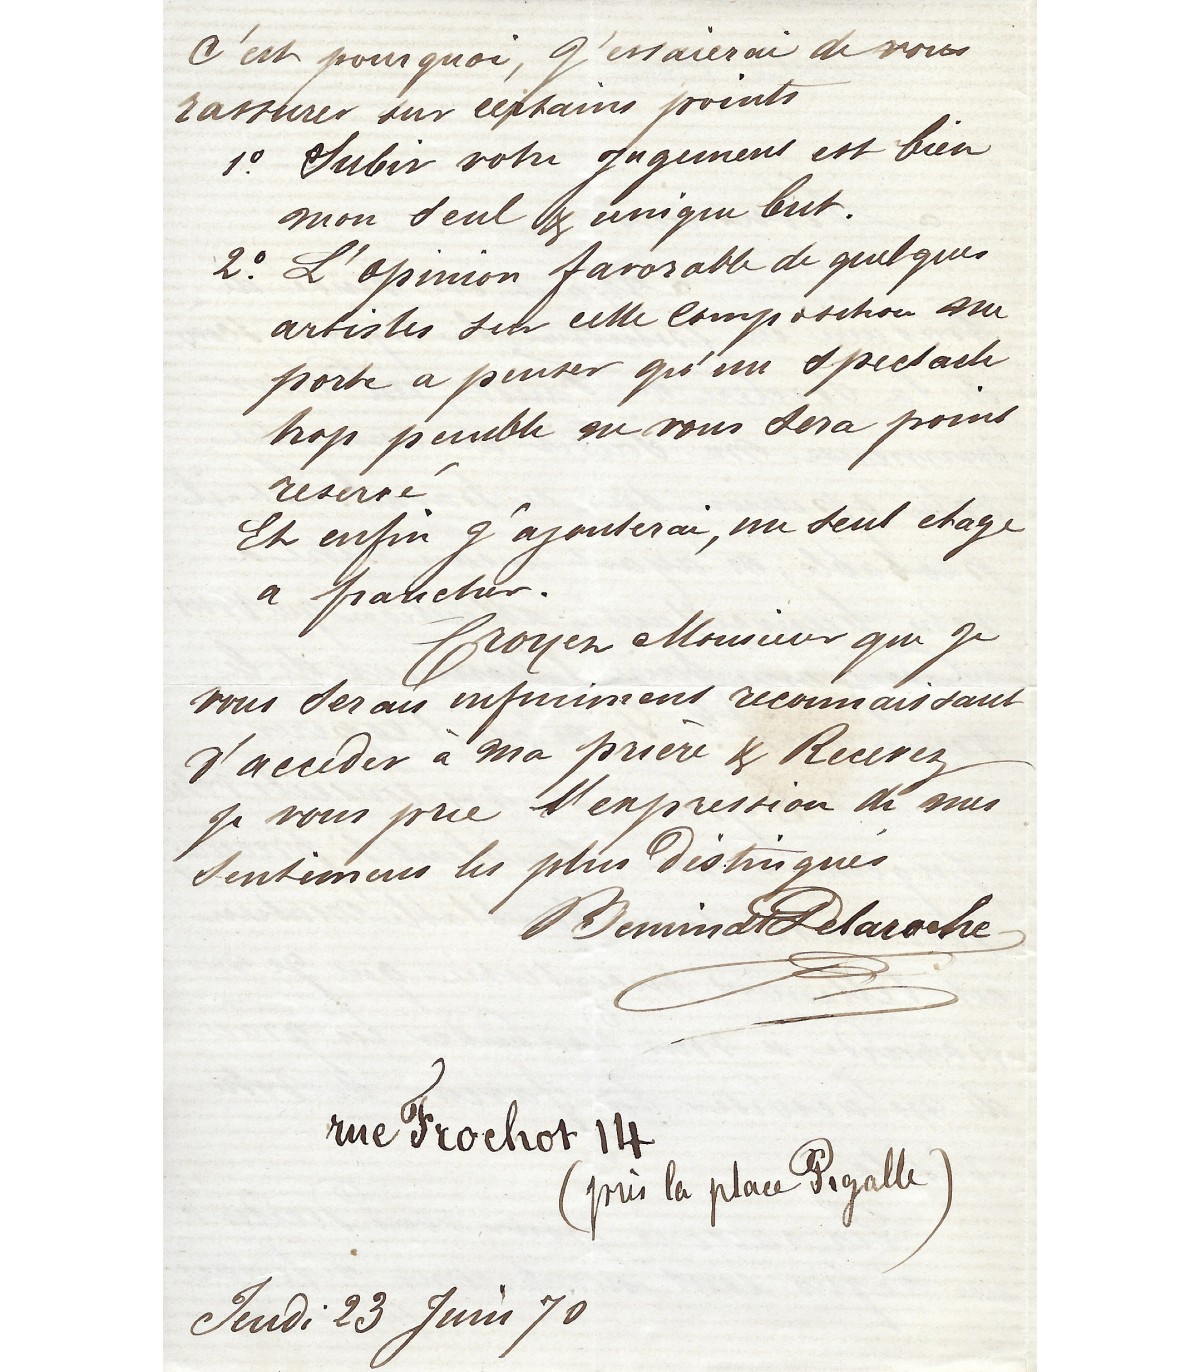 C'est pourquoi, j'essaierai de vous
rassurer sur certains points
1º. Subir votre jugement est bien
mon seul & unique but.
2º. L'opinion favorable de quelques
artistes sur cette composition me
porte a penser qu'un spectacle
trop penible ne vous sera point
reservé
Et enfin j'ajouterai, un seul etage
a francher.
Croyez Monsieur que je
vous serais infiniment reconnaissant
d'acceder à ma prière & Recevez
je vous prie l'expression de mes
sentimens les plus distingués
Delaroche
rue Frochot 14
(près la place Pigalle)
Jeudi 23 Juin 70